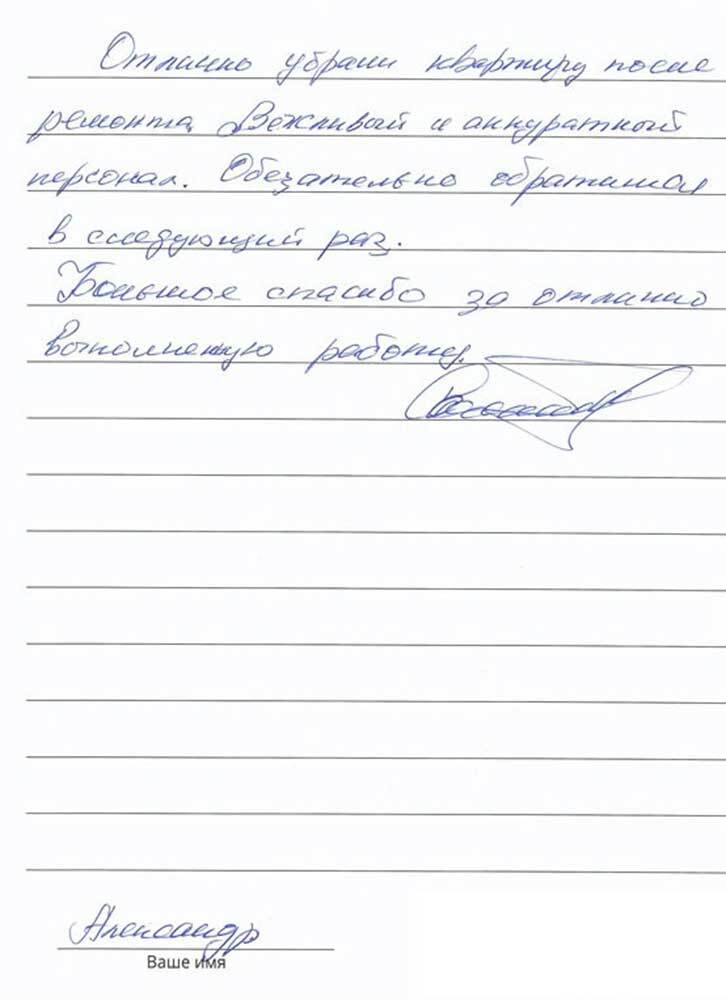 Отлично убрали квартиру после
ремонта. Вежливый и аккуратный
персонал. Обезательно обратимся
в следующий раз.
Большое спасибо за отлично
выполненую работу.
Александр
Ваше имя